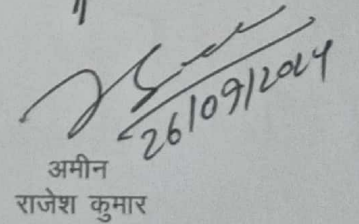 26/09/2024
अमीन
राजेश कुमार